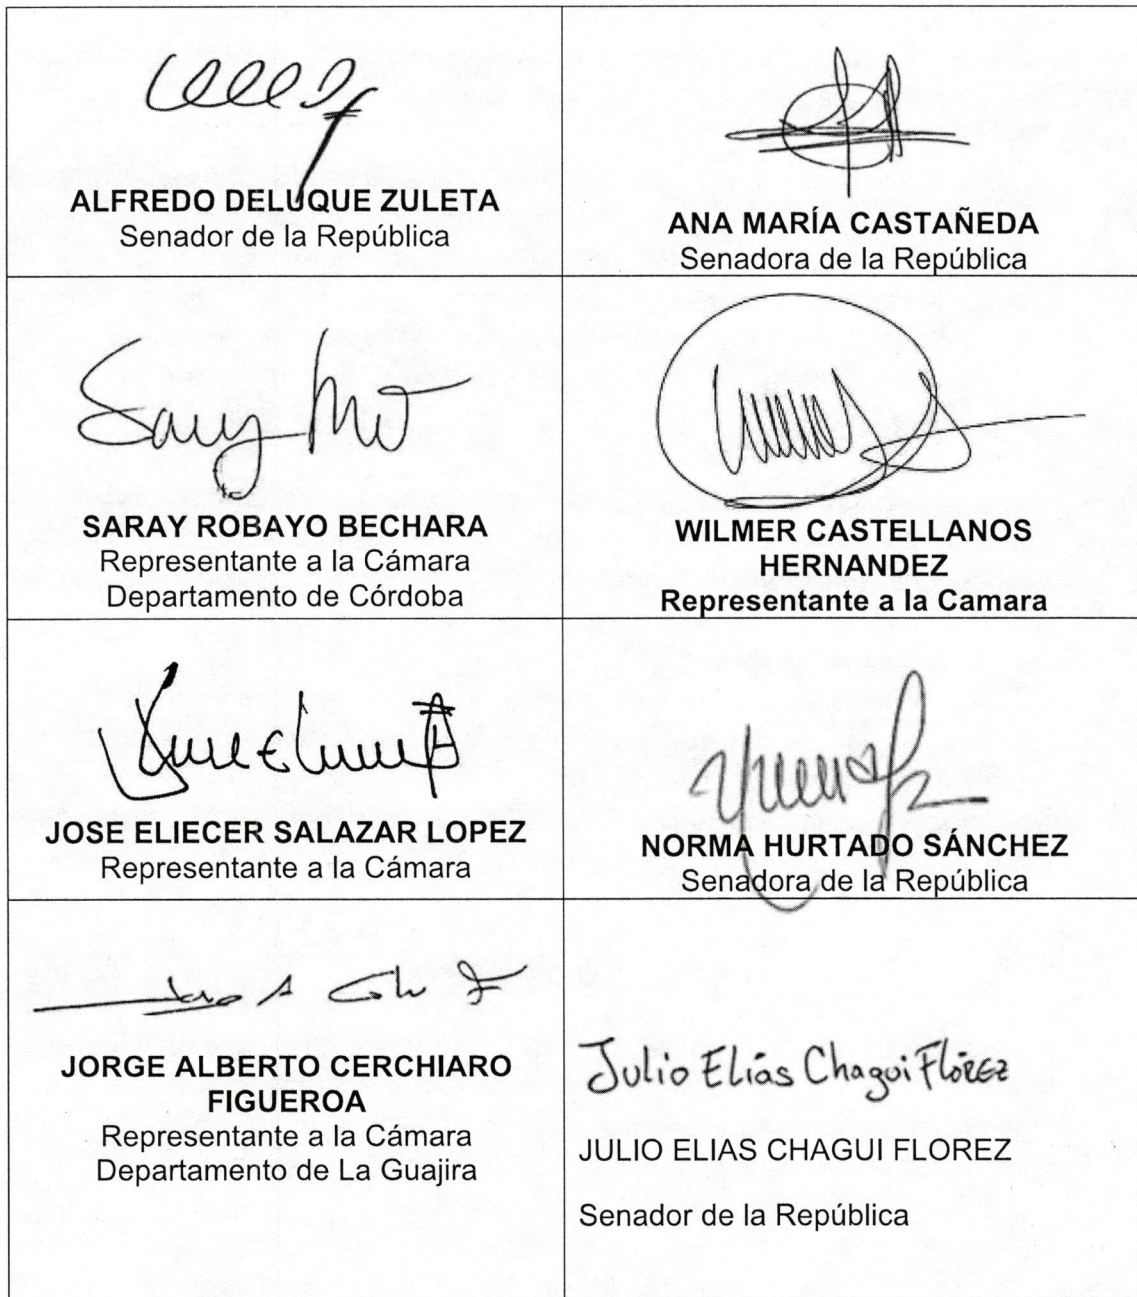 ALFREDO DELUQUE ZULETA
Senador de la República
ANA MARÍA CASTAÑEDA
Senadora de la República
SARAY ROBAYO BECHARA
Representante a la Cámara
Departamento de Córdoba
WILMER CASTELLANOS
HERNANDEZ
Representante a la Camara
JOSE ELIECER SALAZAR LOPEZ
Representante a la Cámara
NORMA HURTADO SÁNCHEZ
Senadora de la República
JORGE ALBERTO CERCHIARO
FIGUEROA
Representante a la Cámara
Departamento de La Guajira
Julio Elías Chagui Flórez
JULIO ELIAS CHAGUI FLOREZ
Senador de la República